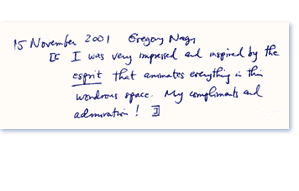 15 November 2001 Gregory Nagy
[[ I was very impressed and inspired by the
esprit that animates everything in this
wondrous space. My compliments and
admiration! ]]